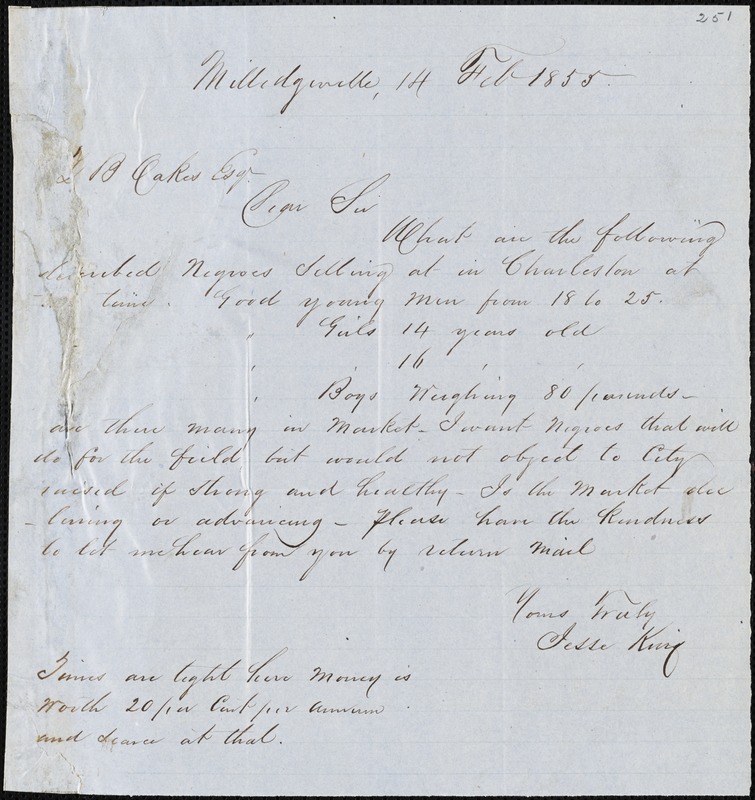 251
Milledgeville, 14 Feb 1855
Z B Oakes Esqr
Dear Sir
What are the following
described Negroes Selling at in Charleston at
time. Good young Men from 18 to 25.
" Girls 14 years old
" " 16 " "
" Boys Weighing 80 pounds -
are there many in Market - I want Negroes that will
do for the field but would not object to City
raised if strong and healthy - Is the Market dec
-lining or advancing - Please have the kindness
to let me hear from you by return Mail
Yours Truly
Jesse King
Times are tight here Money is
Worth 20 per Cent per annum
and scarce at that.